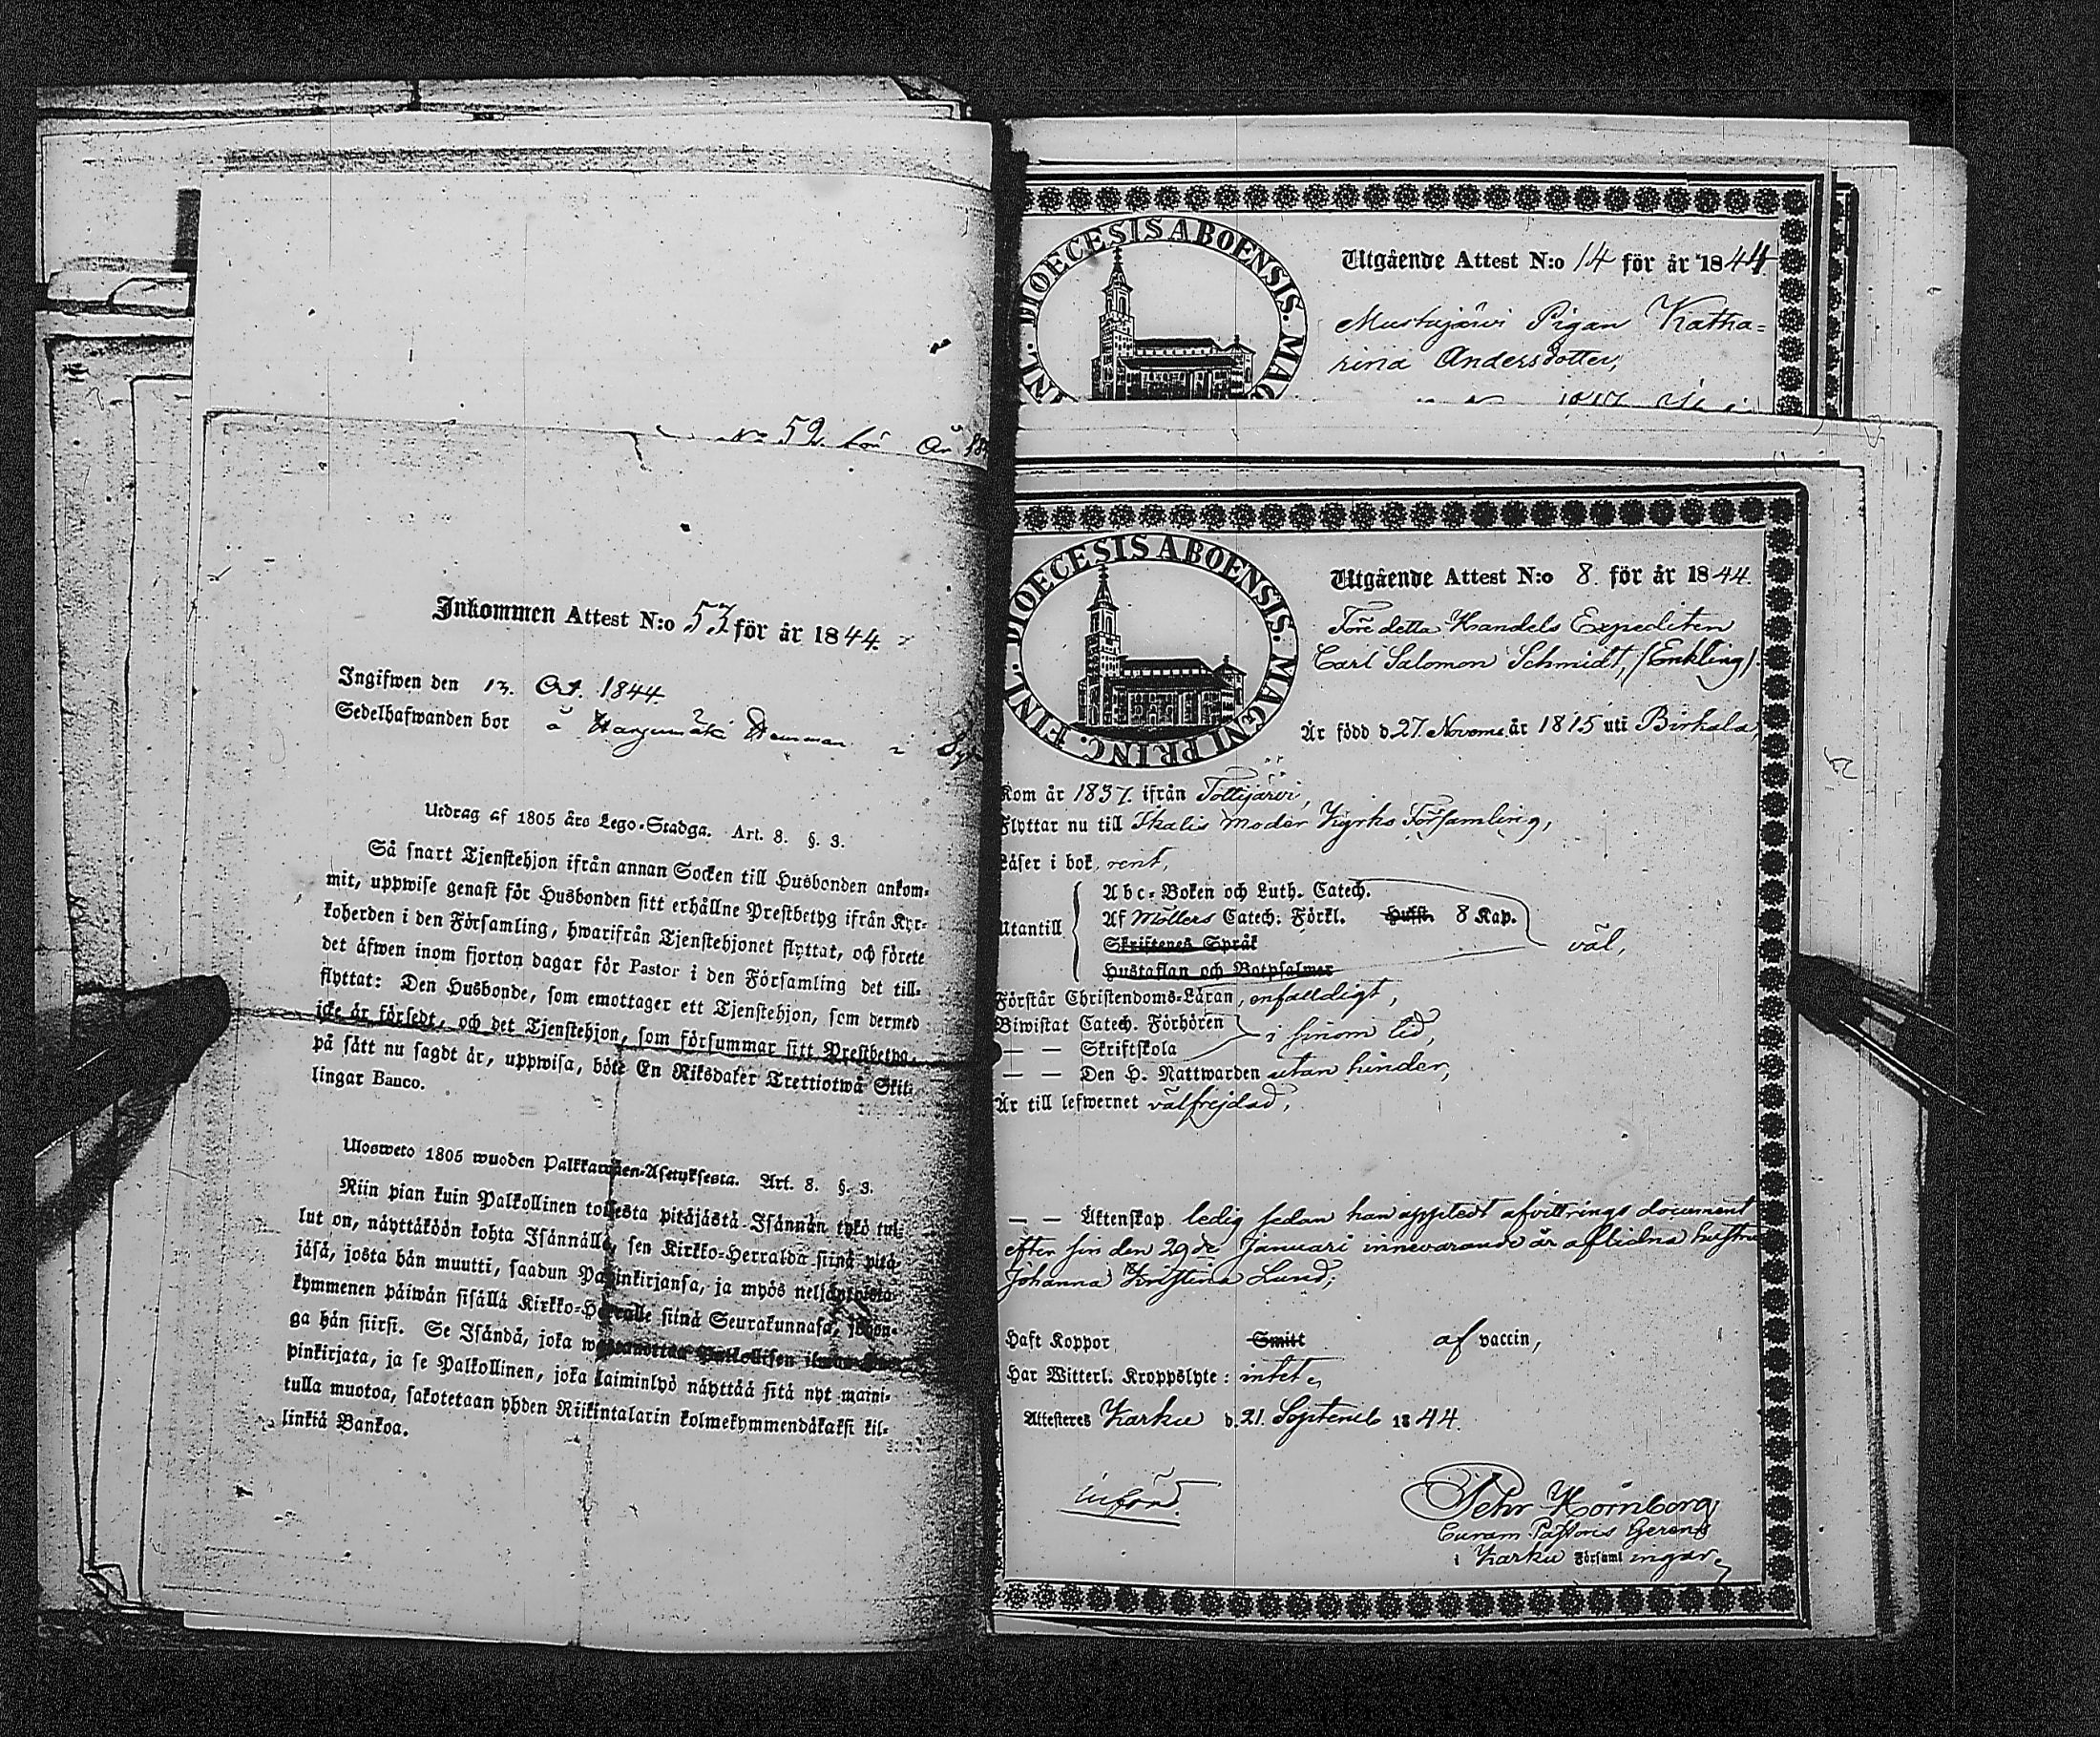 No 52. för År
Inkommen Attest N:o 53 för år 1844.
Ingifwen den 13. Oct. 1844.
Sedelhafwanden bor å Hemman i
Utdrag af 1805 års Lego-Stadga. Art. 8. §. 3.
Så snart Tjenstehjon ifrån annan Socken till Husbonden ankom-
mit, uppwise genast för Husbonden sitt erhållne Prestbetyg ifrån Kyr-
koherden i den Församling, hwarifrån Tjenstehjonet flyttat, och förete
det äfwen inom fjorton dagar för Pastor i den Församling det till-
flyttat: Den Husbonde, som emottager ett Tjenstehjon, som dermed
icke är försedt, och det Tjenstehjon, som försummar sitt Prestbetyg,
på sätt nu sagdt är, uppwisa, böte En Riksdaler Trettiotwå Skil-
lingar Banco.
Ulosweto 1805 wuoden Palkkawäen-Asetuksesta. Art. 8. §. 3.
Niin pian kuin Palkollinen toisesta pitäjästä Isännän tykö tul-
lut on, näyttäköön kohta Isännällä, sen Kirkko-Herralda siinä pitä-
jäsä, josta hän muutti, saadun Papinkirjansa, ja myös neljäntoista-
kymmenen päiwän sisällä Kirkko-Herralle siinä Seurakunnasa, johon-
ga hän siirsi. Se Isändä, joka wastaanottaa Palkollisen ilman
pinkirjata, ja se Palkollinen, joka laiminlyö näyttää sitä nyt maini-
tulla muotoa, sakotetaan yhden Riikintalarin kolmekymmendäkaksi kil-
linkiä Bankoa.
DIOECESIS ABOENSIS. MAG
INL.
Utgående Attest N:o 14 för år 1844
Mustajärvi Pigan Katha-
rina Andersdotter,
DIOECESIS ABOENSIS. MAGNI PRINC. FINL.
Utgående Attest N:o 8. för år 1844.
Före detta Handels Expediten
Carl Salomon Schmidt, (Enkling).
Är född d. 27. Novemb. år 1815 uti Birkala,
Kom år 1837. ifrån Tottijärvi,
Flyttar nu till Ikalis Moder Kyrko Församling,
Läser i bok rent,
Abc-Boken och Luth. Catech.
Utantill Af Möllers Catech. Förkl. Husst. 8 Kap. väl,
Skriftenes Språk
Hustaflan och Botpsalmer
Förstår Christendoms-Läran, enfaldigt,
Biwistat Catech. Förhören i sinom tid,
— — Skriftskola
— — Den H. Nattwarden utan hinder,
Är till lefwernet välfrejdad,
— — Äktenskap ledig sedan han upptedt afvittrings document
efter sin den 29de Januari innevarande år aflidna hustru
Johanna Kristina Lund;
Haft Koppor Smitt af vaccin,
Har Witterl. Kroppslyte: intet,
Attesteres Karku d. 21. Septemb 1844.
införd.
Pehr Hörnborg
Curam Pastoris Gerens
i Karku Församlingar,